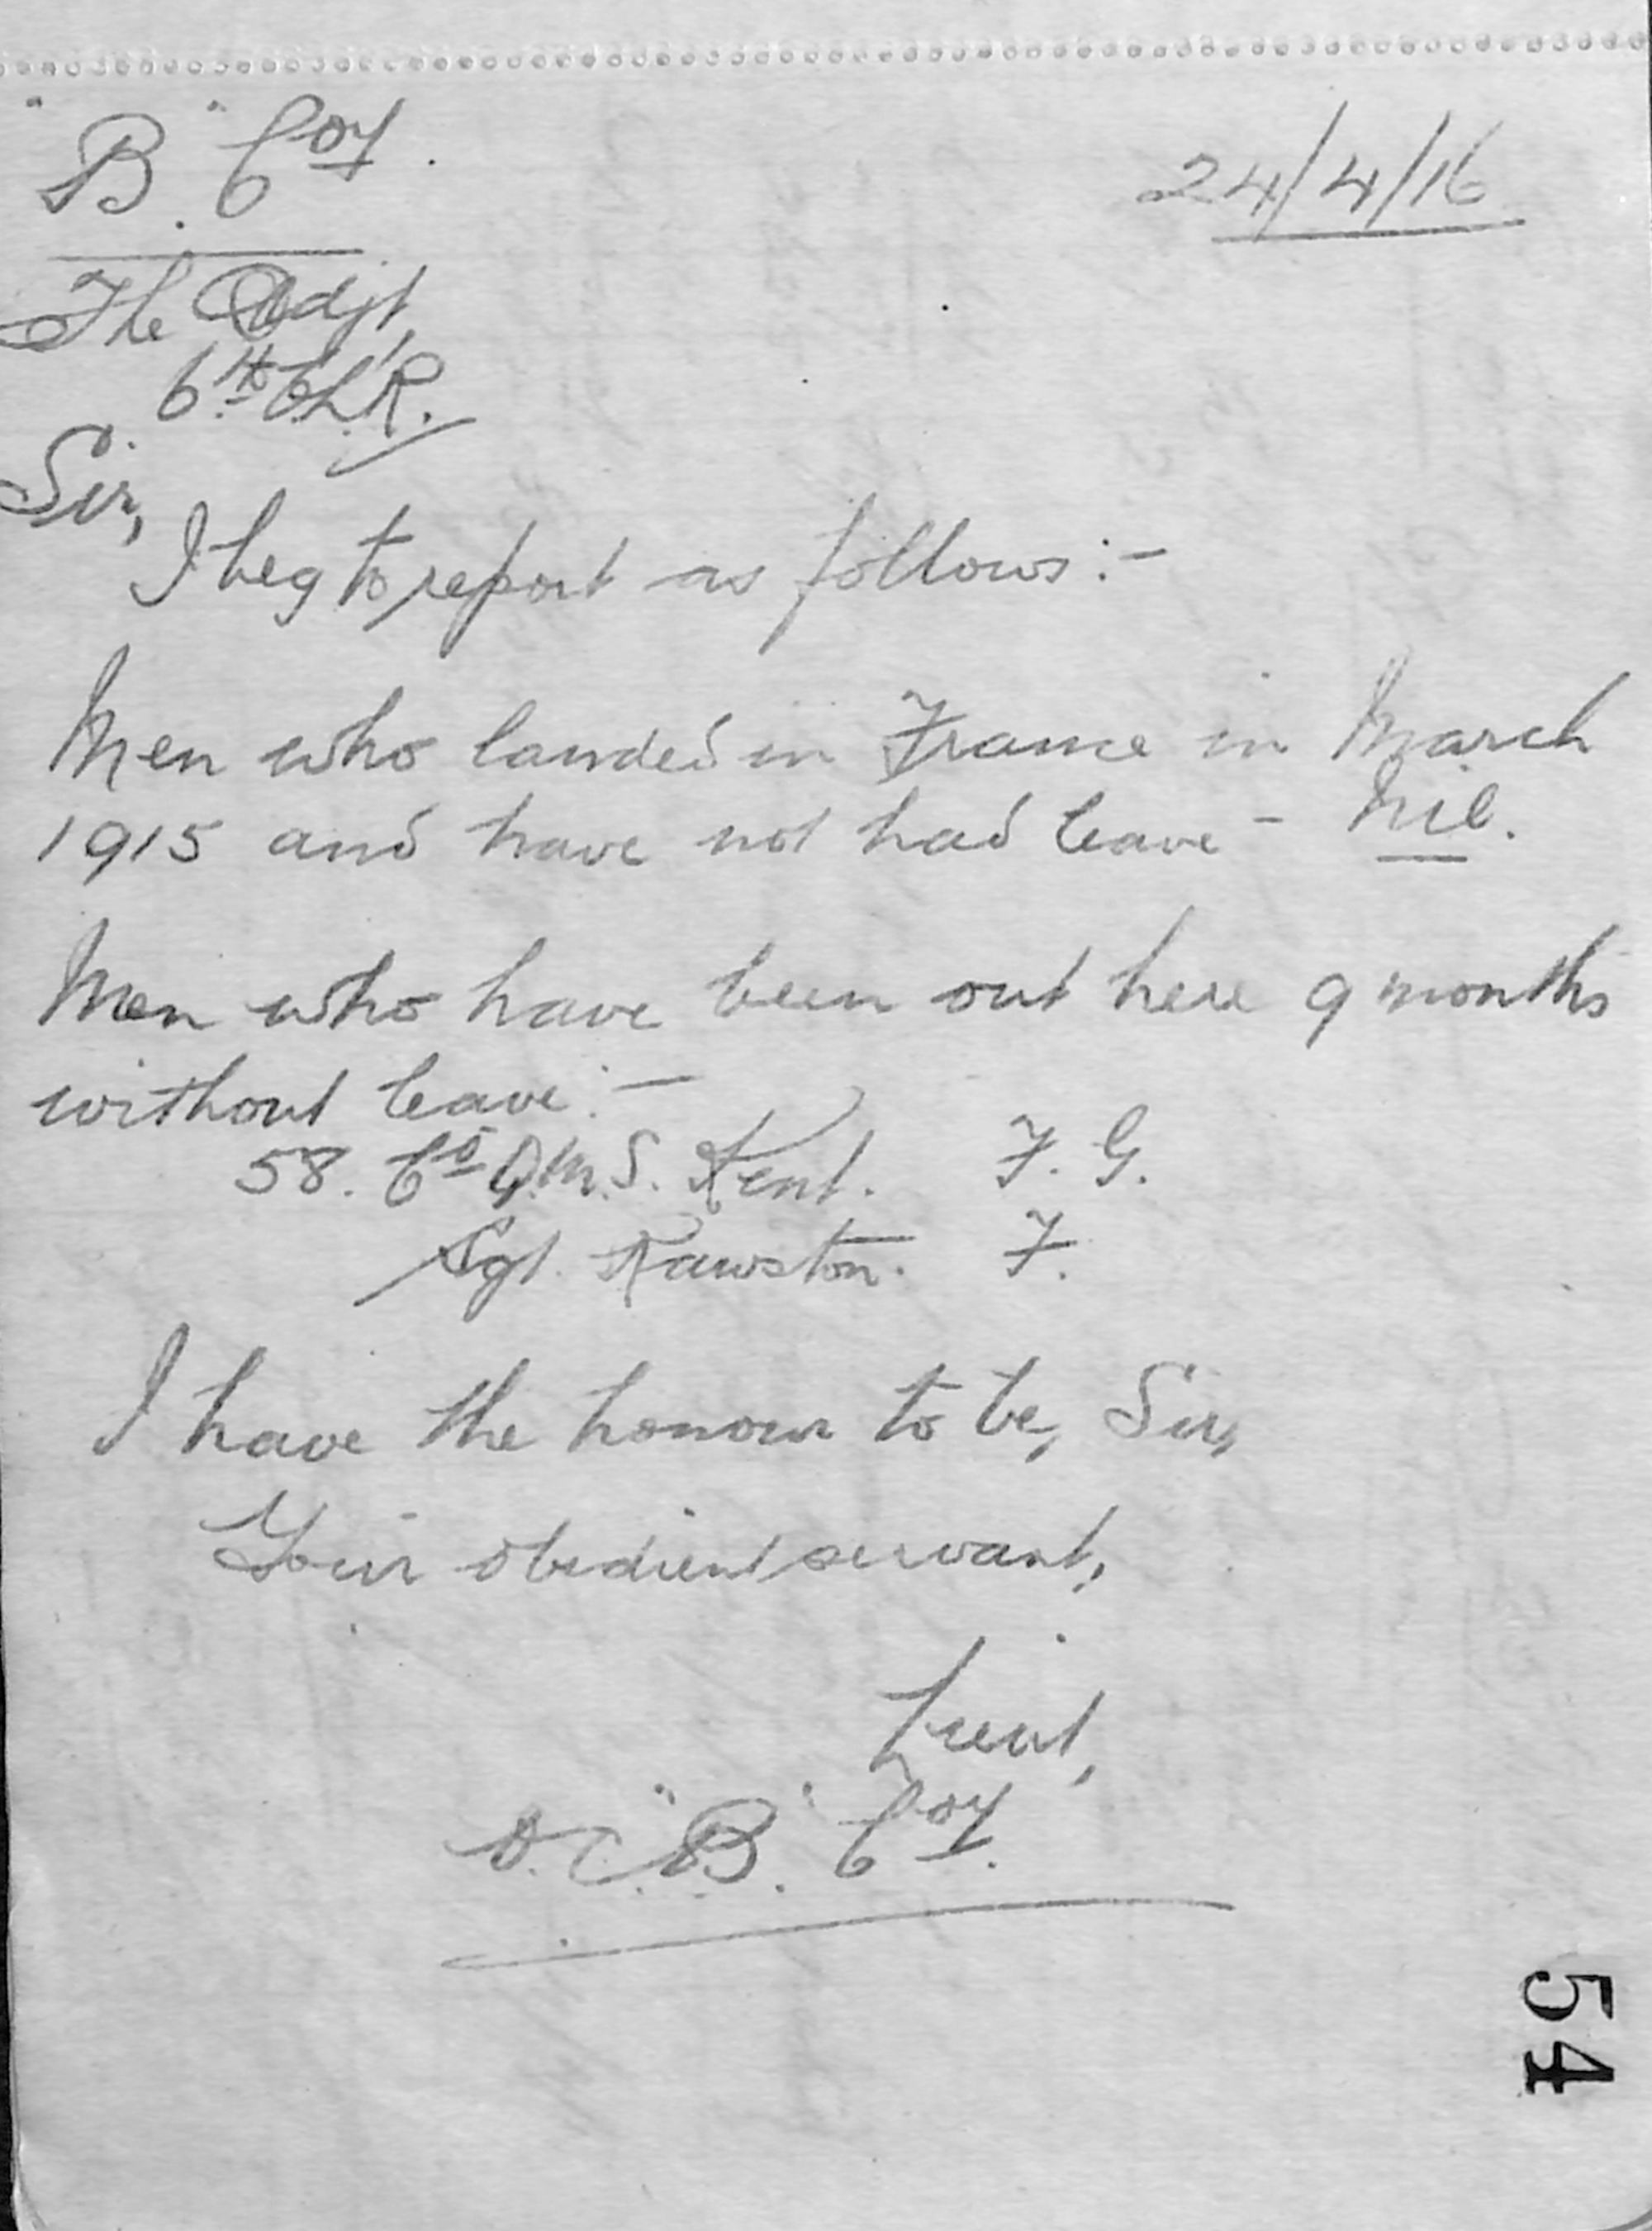 "B" Coy.
24/4/16
The Adjt,
6th C.L.R.
Sir,
I beg to report as follows:-
Men who landed in France in March
1915 and have not had leave - Nil.
Men who have been out here 9 months
without leave:-
58. Co Q.M.S. Kent. F. G.
Sgt. Rawston. F.
I have the honour to be, Sir,
Your obedient servant,
Lieut,
O.C. "B" Coy.
54